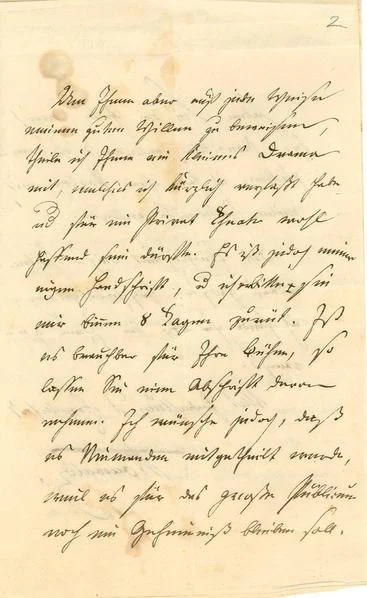 2
Um Ihnen aber auf jede Weise
meinen guten Willen zu beweisen,
theile ich Ihnen ein kleines Drama
mit, welches ich kürzlich verfaßt habe
ud für ein Privat Theater wohl
passend sein dürfte. Es ist jedoch meine
eigene Handschrift, ud ich erbitte sie
mir binnen 8 Tagen zurück. Ist
es brauchbar für Ihre Bühne, so
lassen Sie eine Abschrift davon
nehmen. Ich wünsche jedoch, daß
es Niemanden mitgetheilt werde,
weil es für das große Publicum
noch ein Geheimniß bleiben soll.